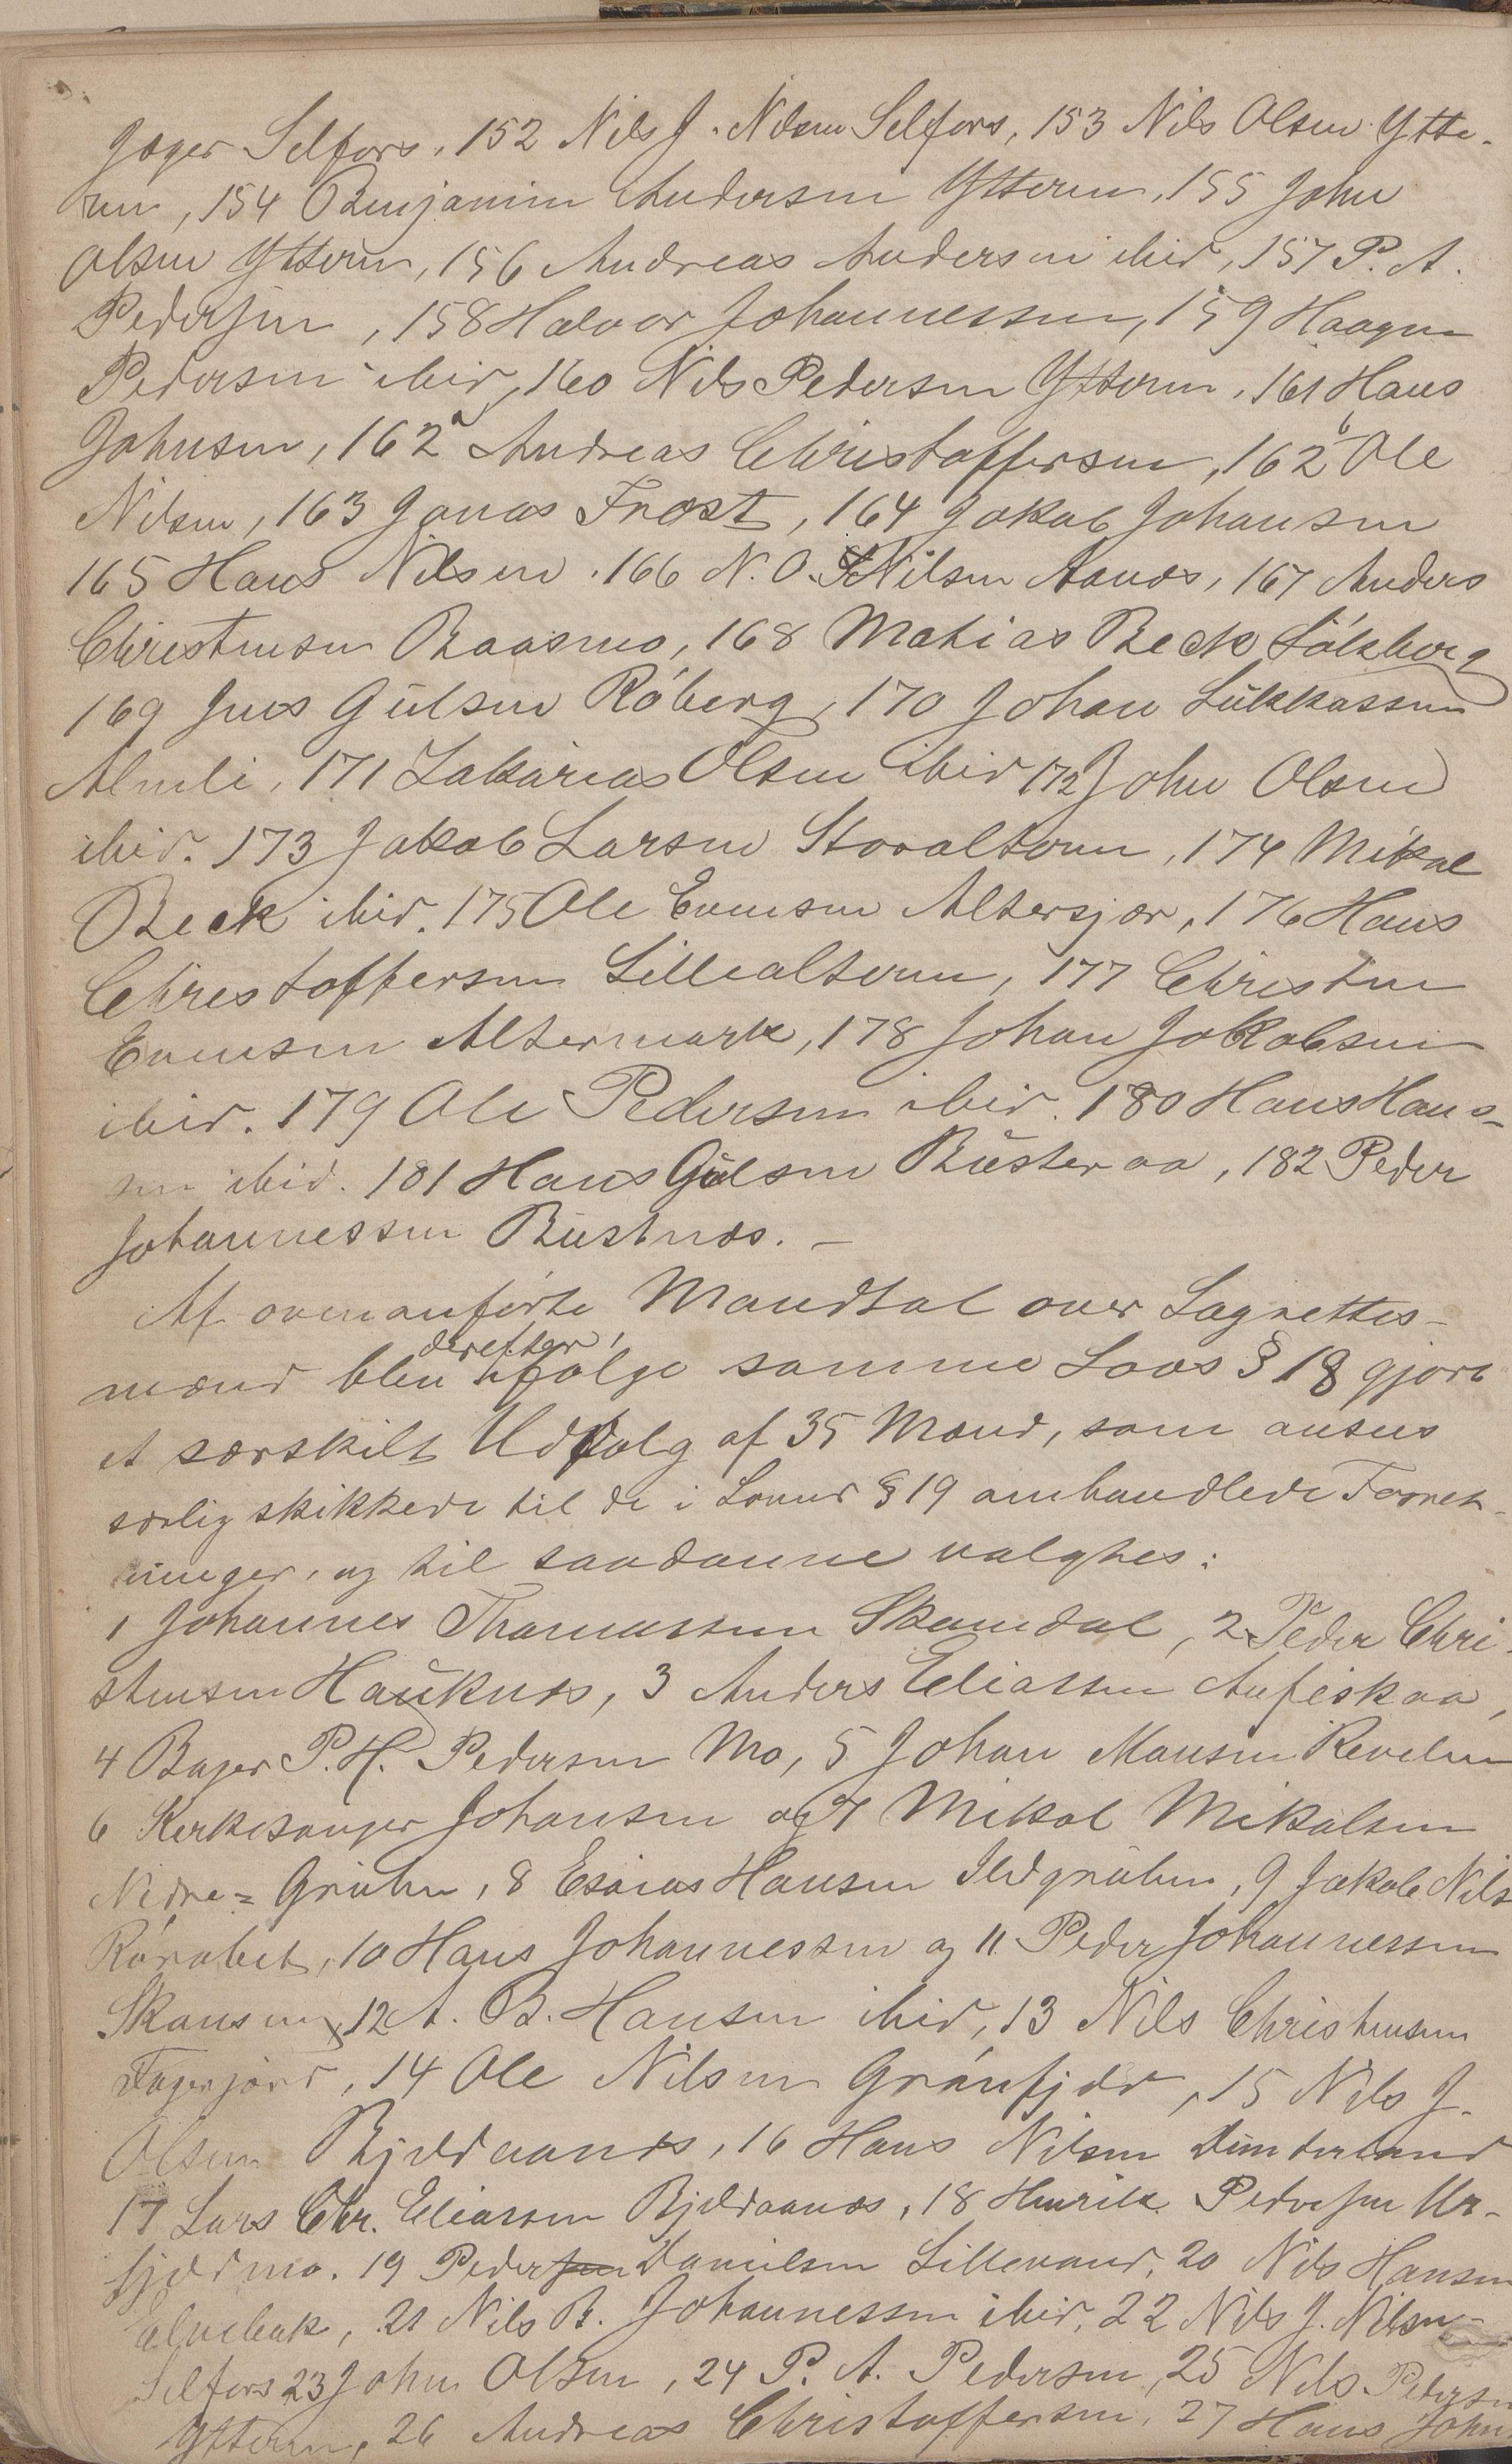 Jæger Selfors, 152 Nils J. Nilsen Selfors, 153 Nils Olsen Ytte-
ren, 154 Benjamin Andersen Ytteren, 155 John
Olsen Ytteren, 156 Andreas Andersen ibid, 157 P. A.
Pedersen, 158 Halvor Johannessen, 159 Haagen
Pedersen ibid, 160 Nils Pedersen Ytteren, 161 Hans
Johnsen, 162a Andreas Christoffersen, 162b Ole
Nilsen, 163 Jonas Frost, 164 Jakob Johansen
165 Hans Nilsen. 166 N. O. Nilsen Aanæs, 167 Anders
Christensen Baasmo, 168 Matias Beck Sölsberg
169 Jens Gulsen Röberg, 170 Johan Lukkassen
Almli, 171 Zakarias Olsen ibid 172 John Olsen
ibid. 173 Jakob Larsen Storalteren, 174 Mikal
Beck ibid. 175 Ole Evensen Altersjær, 176 Hans
Christoffersen Lillealteren, 177 Christen
Evensen Altermark, 178 Johan Jakobsen
ibid. 179 Ole Pedersen ibid. 180 Hans Han-
sen ibid. 181 Hans Gulsen Busteraa, 182 Peder
Johannessen Bustnæs. —
Af ovenanförte Mandtal over Lagrettes-
mænd blev derefter ifölge samme Lovs § 18 gjort
et særskilt Udvalg af 35 Mænd, som ansees
særlig skikkede til de i Lovens § 19 omhandlede Forret-
ninger, og til saadanne valgtes:
1 Johannes Thomassen Skamdal, 2 Peder Chri-
stensen Hauknæs, 3 Anders Eliassen Aufiskaa,
4 Bager P. H. Pedersen Mo, 5 Johan Mansen Revelen
6 Kirkesanger Johansen og 7 Mikal Mikalsen
Nedre=Gruben, 8 Esaias Hansen Ildgruben, 9 Jakob Nils
Rörabet, 10 Hans Johannessen og 11 Peder Johannessen
Skansen, 12 A. B. Hansen ibid, 13 Nils Christensen
Fagerjord, 14 Ole Nilsen Grönfjeld, 15 Nils J.
Olsen Bjeldaanæs, 16 Hans Nilsen Dunderland
17 Lars Chr. Eliassen Bjeldaanæs, 18 Henrik Pedersen Ur-
fjeldmo. 19 Peder Danielsen Lillevand, 20 Nils Hansen
Elvebak, 21 Nils B. Johannessen ibid, 22 Nils J. Nilsen
Selfors 23 John Olsen, 24 P. A. Pedersen, 25 Nils Pedersen
Ytteren, 26 Andreas Christoffersen, 27 Hans John